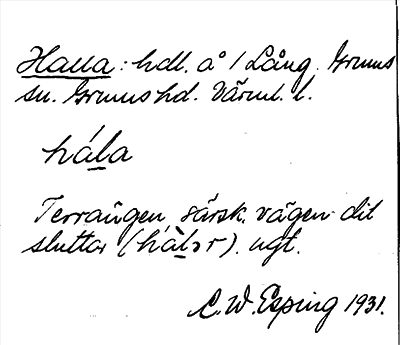 Halla: hdl. å / Lång. Grums
sn. Grums hd. Värml. l.
hála
Terrängen, särsk. vägen dit
sluttar (hàlər). ngt.
C. W. Esping 1931.